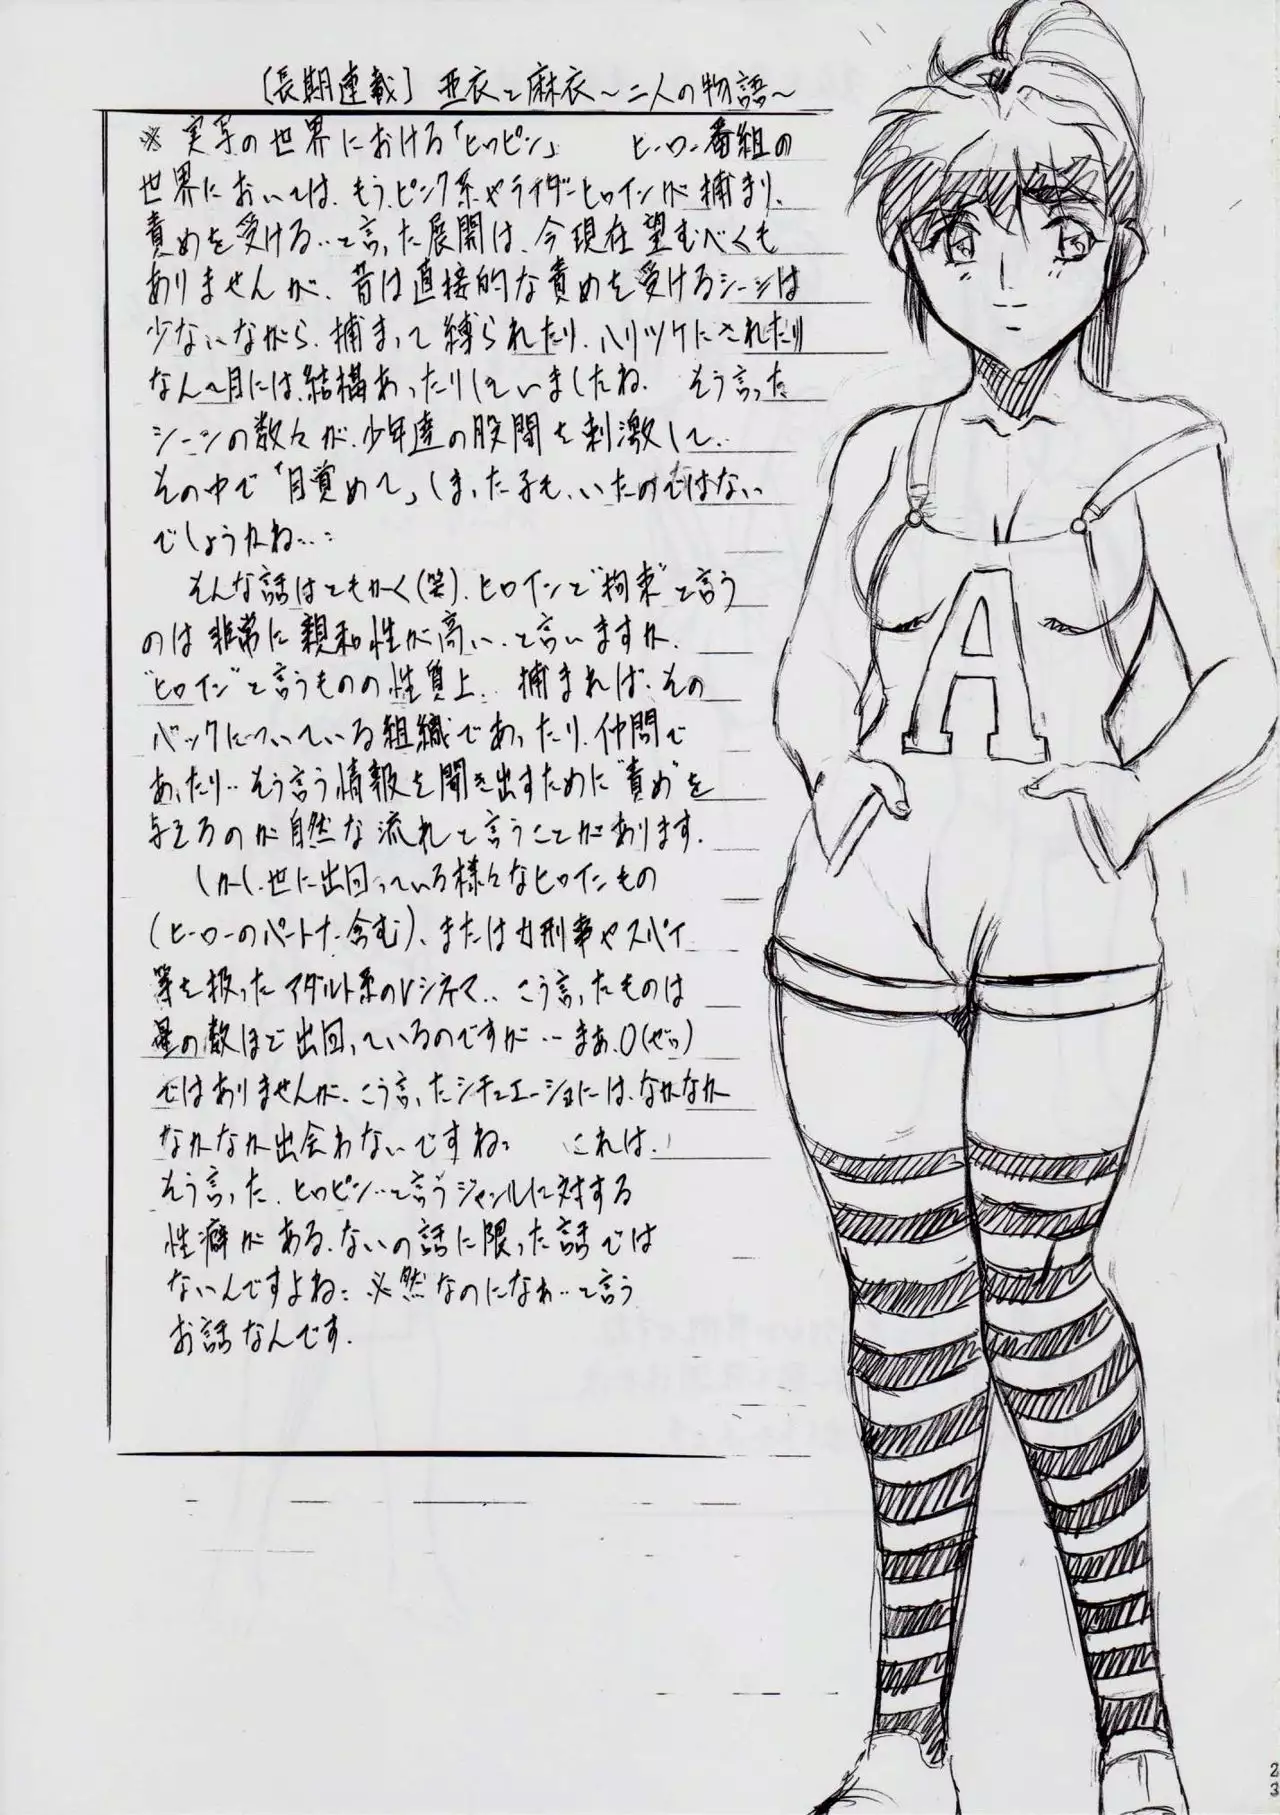 〔長期連載〕 亜衣と麻衣～二人の物語～
※ 実写の世界における「ヒロピン」 ヒーロー番組の
世界においては、もう、ピンク系やライダーヒロインが捕まり、
責めを受ける‥と言った展開は、今現在望むべくも
ありませんが、昔は直接的な責めを受けるシーンは
少ないながら、捕まって縛られたり、ハリツケにされたり
なんて目には、結構あったりしていましたね。 そう言った
シーンの数々が、少年達の股間を刺激して‥
その中で「目覚めて」しまった子も、いたのではない
でしょうかね‥‥
そんな話はともかく(笑)、ヒロインと"拘束"と言う
のは非常に親和性が高い、と言いますか、
"ヒロイン"と言うものの性質上‥ 捕まれば、その
バックについている組織であったり、仲間で
あったり‥そう言う情報を聞き出すために"責め"を
与えるのが自然な流れと言うことがあります。
しかし、世に出回っている様々なヒロインもの
(ヒーローのパートナー含む)、または女刑事やスパイ
等を扱ったアダルト系のVシネマ‥こう言ったものは
星の数ほど出回っているのですが‥まあ、0(ゼロ)
ではありませんが、こう言ったシチュエーションには、なかなか
なかなか出会わないですね。 これは、
そう言った、ヒロピン‥と言うジャンルに対する
性癖がある、ないの話に限った話では
ないんですよね。必然なのになぁ‥と言う
お話なんです。
A
23